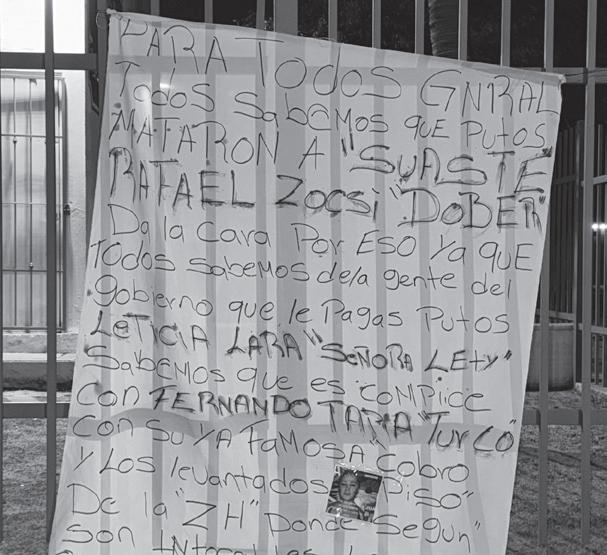 PARA TODOS GNRAL
TodoS SabeMos QUE PUtOS
MATARON A "SUASTE"
RAFAEL ZOCSi "DOBER"
Da la Cara Por ESO YA QUE
TODOS SabeMos dela gente del
gobierno que le Pagas Putos
LETICIA LARA "SEÑORA LEty"
Sabemos que es COMPLICE
Con FERNANDO TARIA "TURCO"
Con SU YA FaMOSA "Cobro
Y Los levantados Piso"
De la "ZH" Donde Segun"
Son